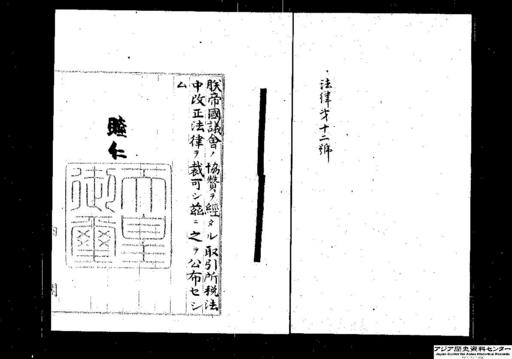 法律第十二號
朕帝國議會ノ協賛ヲ經タル取引所税法
中改正法律ヲ裁可シ茲ニ之ヲ公布セシ
ム
睦仁
天皇
御璽
アジア歴史資料センター
Japan Center for Asian Historical Records